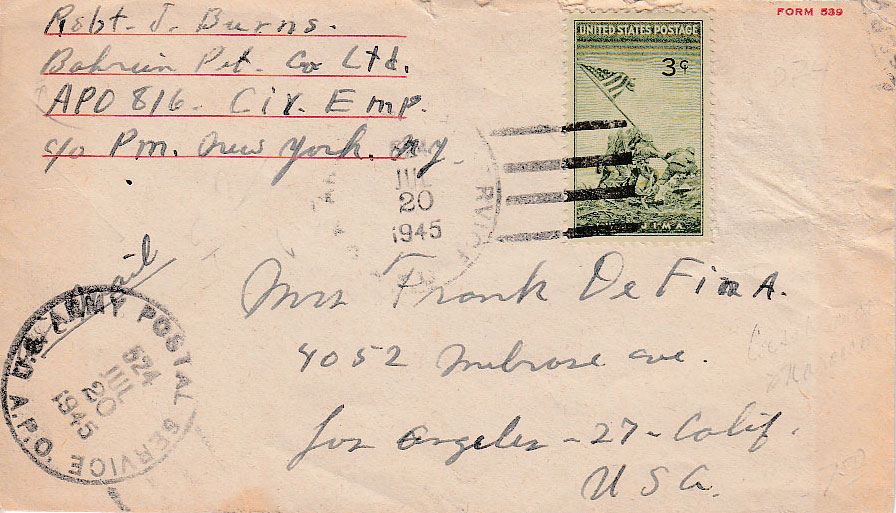 Robt. J. Burns.
Bahrein Pet. Co Ltd.
APO 816. Civ. Emp.
c/o P.m. New York. Ny.
FORM 539
UNITED STATES POSTAGE
3¢
JUL
20
1945
Mrs Frank De Fina.
4052 Melrose ave.
Los Angeles - 27 - Calif.
USA.
U.S. ARMY POSTAL SERVICE
A.P.O.
524
JUL
20
1945